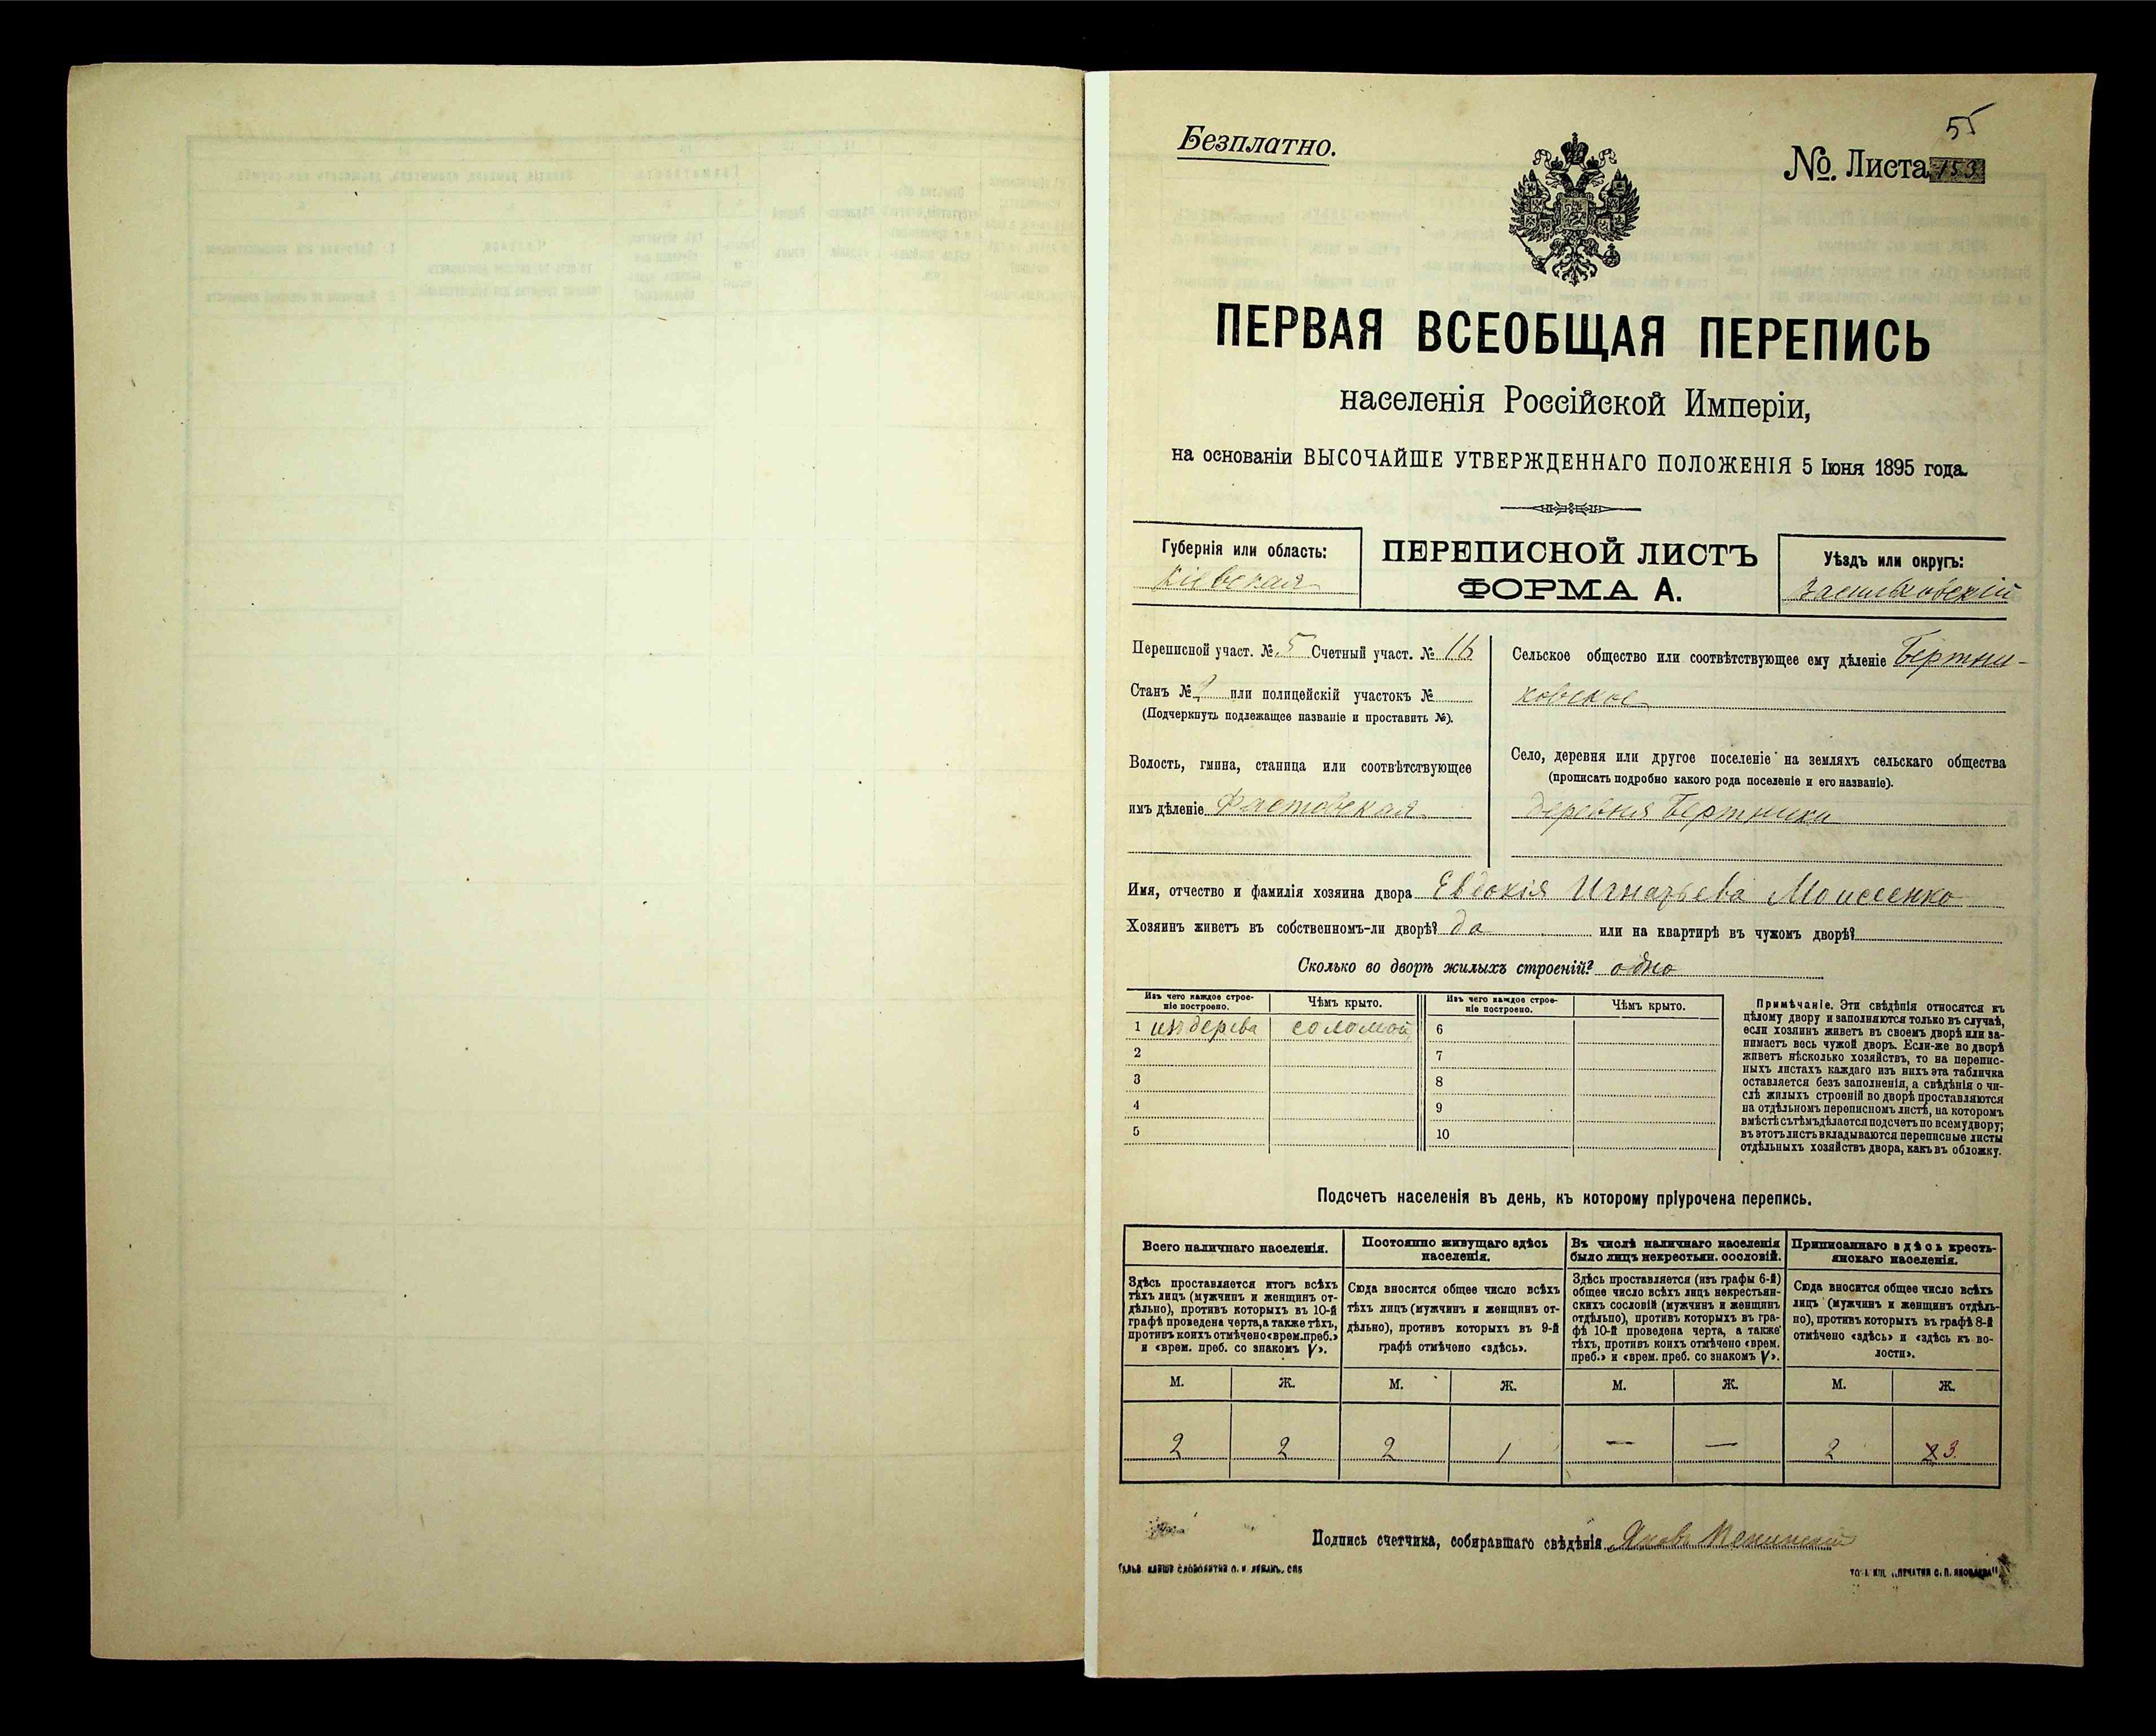 55
Безплатно.
№. Листа 153
ПЕРВАЯ ВСЕОБЩАЯ ПЕРЕПИСЬ
населенія Россійской Имперіи,
на основаніи ВЫСОЧАЙШЕ УТВЕРЖДЕННАГО ПОЛОЖЕНІЯ 5 Іюня 1895 года.
Губернія или область:
Кіевская
ПЕРЕПИСНОЙ ЛИСТЪ
ФОРМА А.
Уѣздъ или округъ:
Васильковскій
Переписной участ. № 5 Счетный участ. № 16
Станъ № или полицейскій участокъ №
(Подчеркнуть подлежащее названіе и проставить №).
Волость, гмина, станица или соотвѣтствующее
имъ дѣленіе Фастовская
Сельское общество или соотвѣтствующее ему дѣленіе Бертни-
ковское
Село, деревня или другое поселеніе на земляхъ сельскаго общества
(прописать подробно какого рода поселеніе и его названіе).
деревня Бертники
Имя, отчество и фамилія хозяина двора Евдокія Игнатьева Моисеенко
Хозяинъ живетъ въ собственномъ-ли дворѣ? да или на квартирѣ въ чужомъ дворѣ?
Сколько во дворѣ жилыхъ строеній? одно
Изъ чего каждое строе-
ніе построено.
Чѣмъ крыто.
Изъ чего каждое строе-
ніе построено.
Чѣмъ крыто.
1 изъ дерева соломой 6
2 7
3 8
4 9
5 10
Примѣчаніе. Эти свѣдѣнія относятся къ
цѣлому двору и заполняются только въ случаѣ,
если хозяинъ живетъ въ своемъ дворѣ или за-
нимаетъ весь чужой дворъ. Если-же во дворѣ
живетъ нѣсколько хозяйствъ, то на перепис-
ныхъ листахъ каждаго изъ нихъ эта табличка
оставляется безъ заполненія, а свѣдѣнія о чи-
слѣ жилыхъ строеній во дворѣ проставляются
на отдѣльномъ переписномъ листѣ, на которомъ
вмѣстѣ съ тѣмъ дѣлается подсчетъ по всему двору;
въ этотъ листъ вкладываются переписные листы
отдѣльныхъ хозяйствъ двора, какъ въ обложку.
Подсчетъ населенія въ день, къ которому пріурочена перепись.
Всего наличнаго населенія.
Здѣсь проставляется итогъ всѣхъ
тѣхъ лицъ (мужчинъ и женщинъ от-
дѣльно), противъ которыхъ въ 10-й
графѣ проведена черта, а также тѣхъ,
противъ коихъ отмѣчено «врем. преб.»
и «врем. преб. со знакомъ V».
Постоянно живущаго здѣсь
населенія.
Сюда вносится общее число всѣхъ
тѣхъ лицъ (мужчинъ и женщинъ от-
дѣльно), противъ которыхъ въ 9-й
графѣ отмѣчено «здѣсь».
Въ числѣ наличнаго населенія
было лицъ некрестьян. сословій.
Здѣсь проставляется (изъ графы 6-й)
общее число всѣхъ лицъ некрестьян-
скихъ сословій (мужчинъ и женщинъ
отдѣльно), противъ которыхъ въ гра-
фѣ 10-й проведена черта, а также
тѣхъ, противъ коихъ отмѣчено «врем.
преб.» и «врем. преб. со знакомъ V».
Приписаннаго здѣсь кресть-
янскаго населенія.
Сюда вносится общее число всѣхъ
лицъ (мужчинъ и женщинъ отдѣль-
но), противъ которыхъ въ графѣ 8-й
отмѣчено «здѣсь» и «здѣсь въ во-
лости».
М. Ж. М. Ж. М. Ж. М. Ж.
2 2 2 1 — — 2 2 3.
Подпись счетчика, собиравшаго свѣдѣнія Яковъ